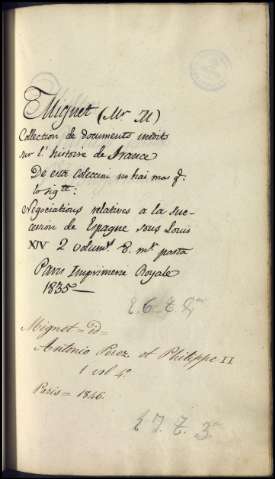 Mignet (Mr. M)
Collection de documents inédits
sur l'histoire de France
De esta Coleccion no hai mas q.
lo sigte:
Négociations relatives a la suc-
cession de Espagne sous Louis
XIV 2 volum.s 8. mr. pasta
Paris Imprimerie Royale
1835—
Mignet = d =
Antonio Perez et Philippe II
1 vol 4.
Paris = 1846.